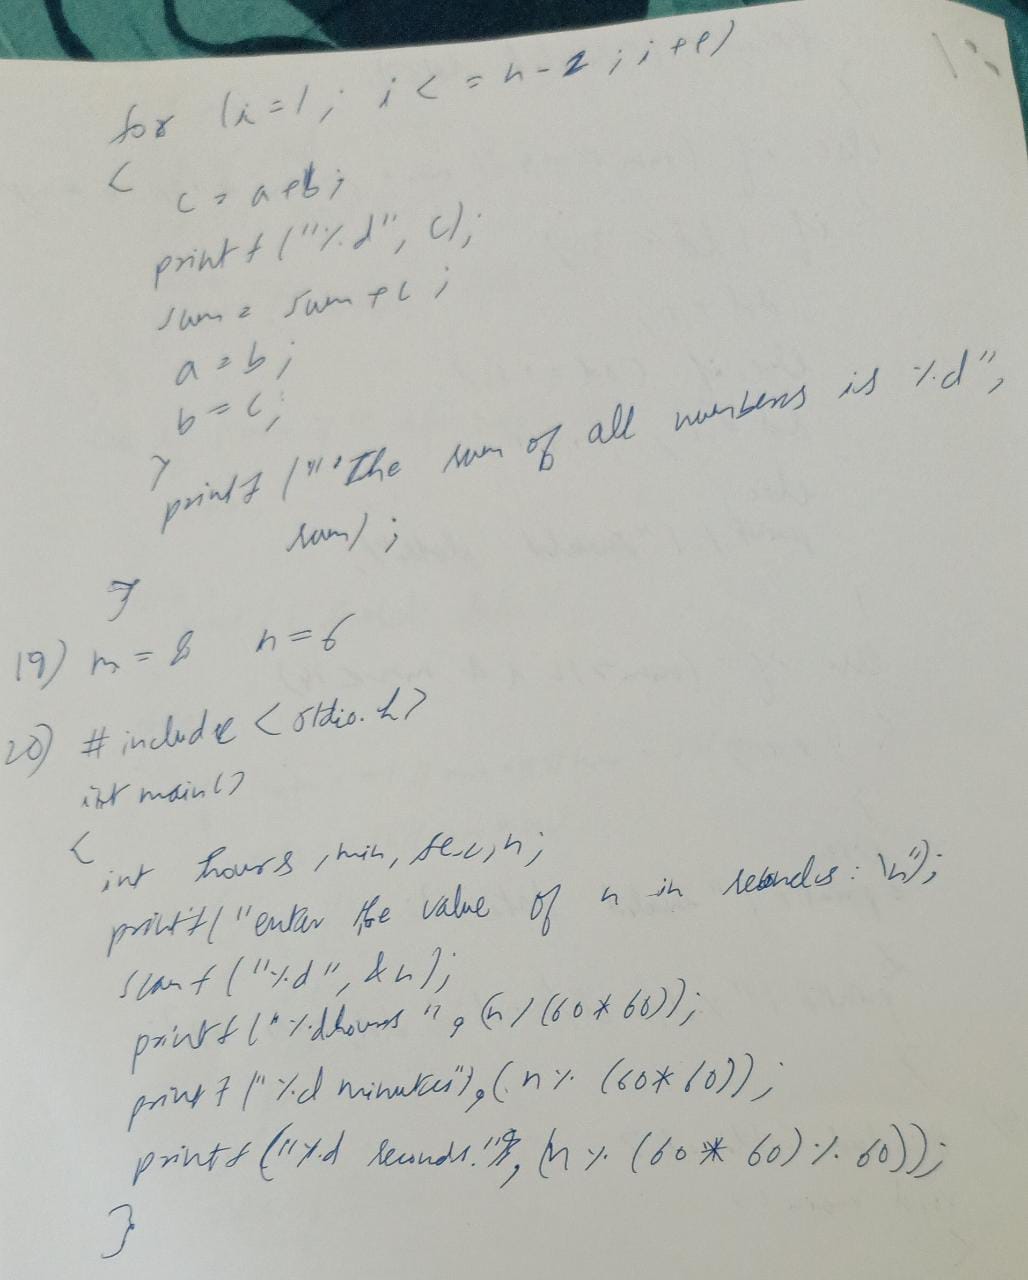 for (i=1; i<=n-2; i++)
{
c = a+b;
printf ("%d", c);
sum = sum+c;
a=b;
b=c;
}
printf ("The sum of all numbers is %d",
sum);
}
19) m = 8 n=6
20) #include <stdio.h>
int main()
{
int hours, min, sec, n;
printf("enter the value of n in seconds: \n");
scanf ("%d", &n);
printf ("%dhours", (n/(60*60));
printf ("%d minutes"), (n% (60*60));
printf ("%d seconds.", (n% (60*60)%60));
}